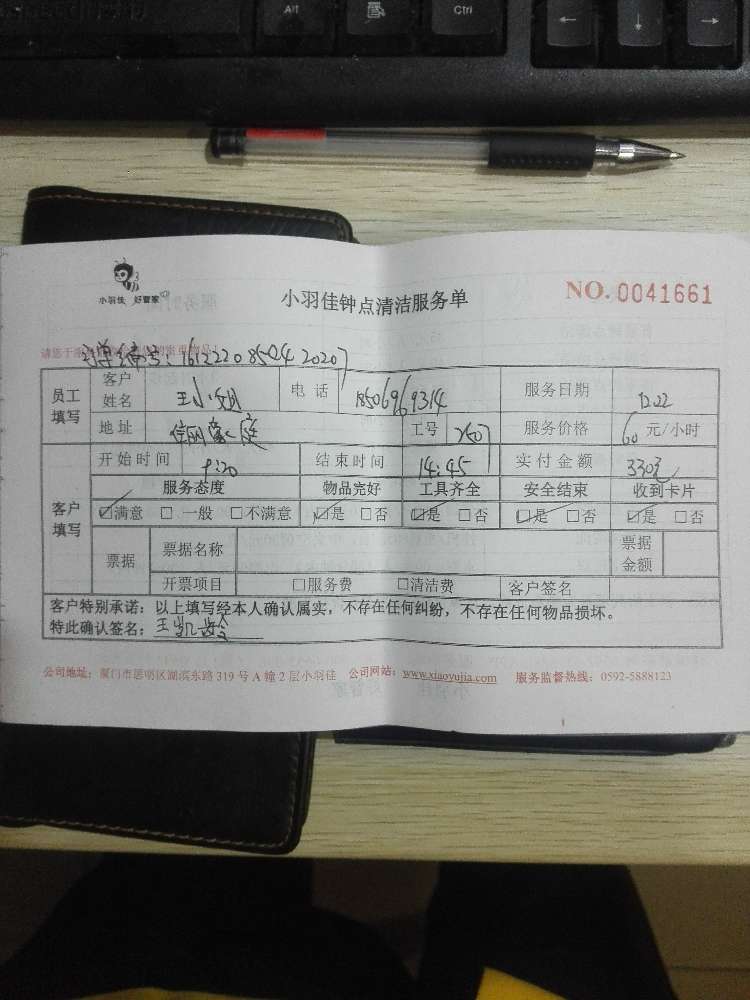 Alt
Ctrl
小羽佳 好管家
小羽佳钟点清洁服务单
NO. 0041661
订单编号: 1612220850420207
员工填写
客户姓名 王小姐 电话 18506969314 服务日期 12.22
地址 佳丽豪庭 工号 服务价格 60 元/小时
客户填写
开始时间 9:20 结束时间 14:45 实付金额 330元
服务态度 物品完好 工具齐全 安全结束 收到卡片
☑满意 □一般 □不满意 ☑是 □否 ☑是 □否 ☑是 □否 ☑是 □否
票据 票据名称 票据金额
开票项目 □服务费 □清洁费 客户签名
客户特别承诺：以上填写经本人确认属实，不存在任何纠纷，不存在任何物品损坏。
特此确认签名：王凯
公司地址：厦门市思明区湖滨东路 319 号 A 幢 2 层小羽佳 公司网站：www.xiaoyujia.com 服务监督热线：0592-5888123